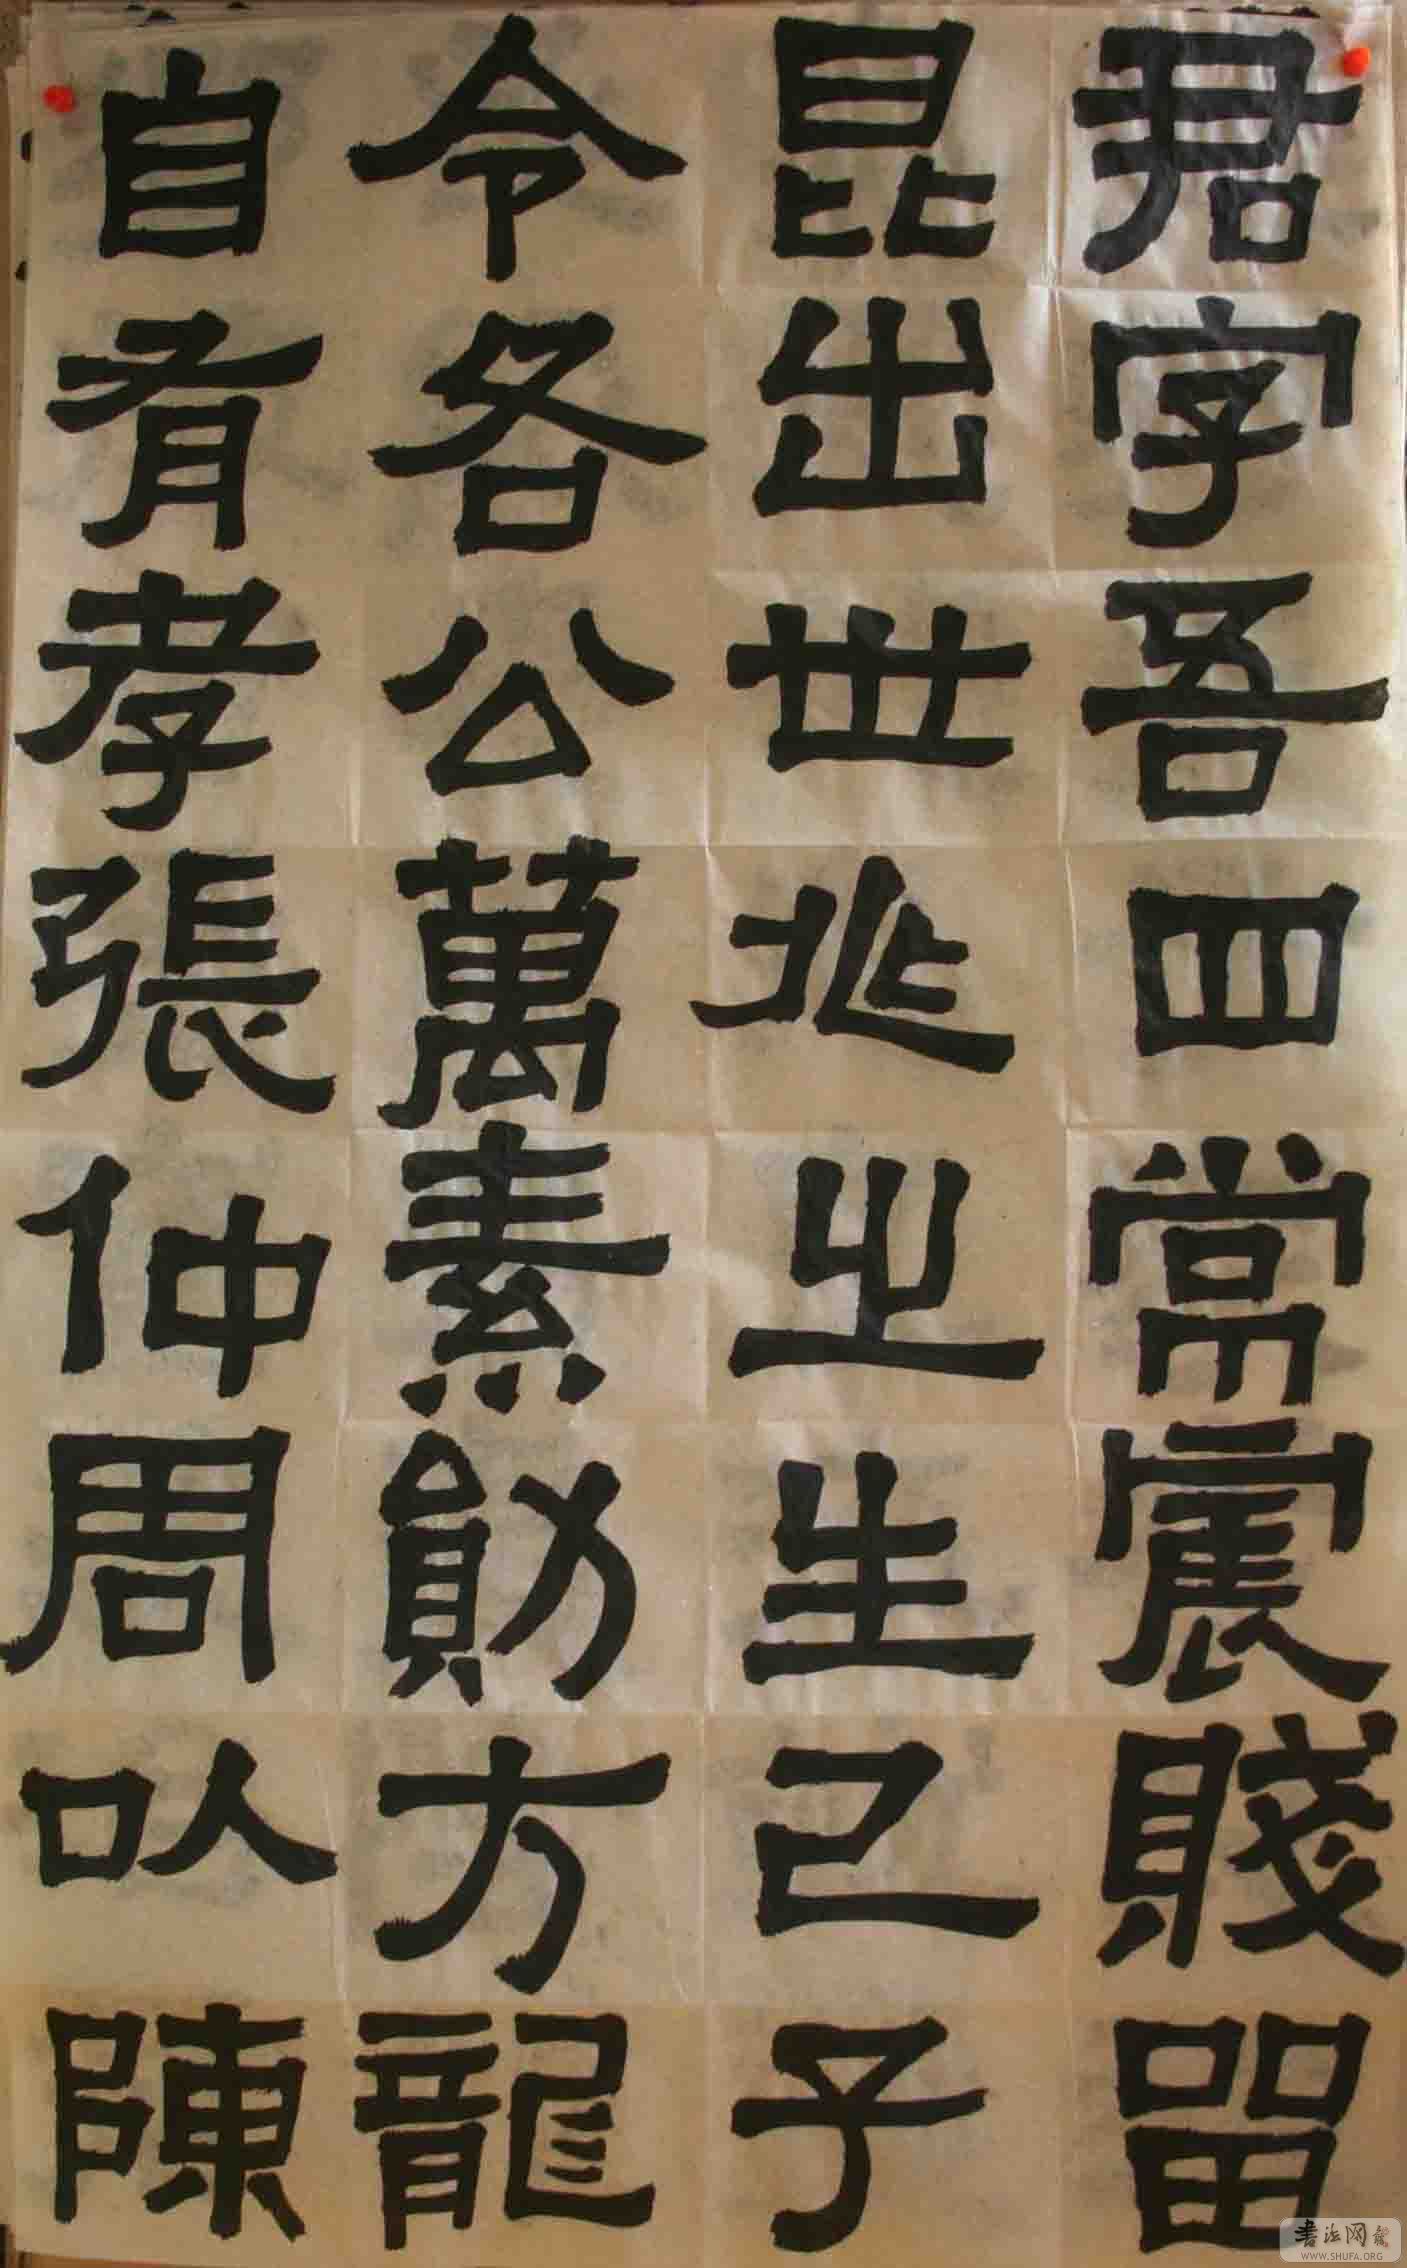 君字吾四常震賤留
昆出世兆㞢生己子
令各公萬素勛方龍
自有孝張仲周以陳
书法网
WWW.SHUFA.ORG